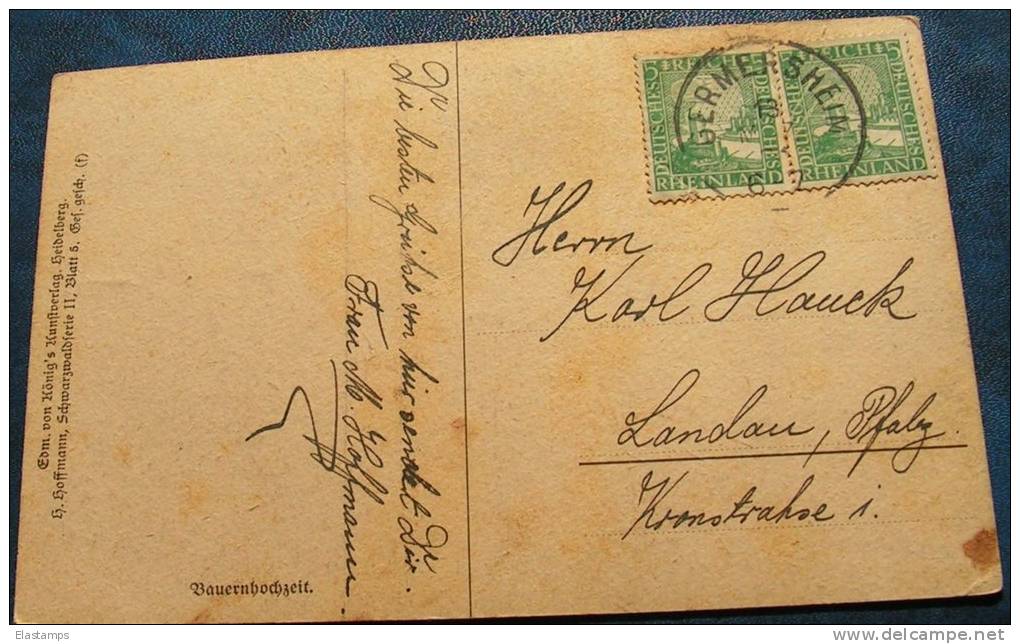 Edm. von König's Kunstverlag, Heidelberg.
H. Hoffmann, Schwarzwaldserie II, Blatt 5. Ges. gesch. (f)
Bauernhochzeit.
Die besten Grüße von hier sendet Dir
Frau M. Hoffmann.
DEUTSCHES REICH 5
RHEINLAND
DEUTSCHES REICH 5
RHEINLAND
GERMERSHEIM
Herrn
Karl Hauck
Landau, Pfalz.
Kronstrahse i.
Elastamps
delcampe.net